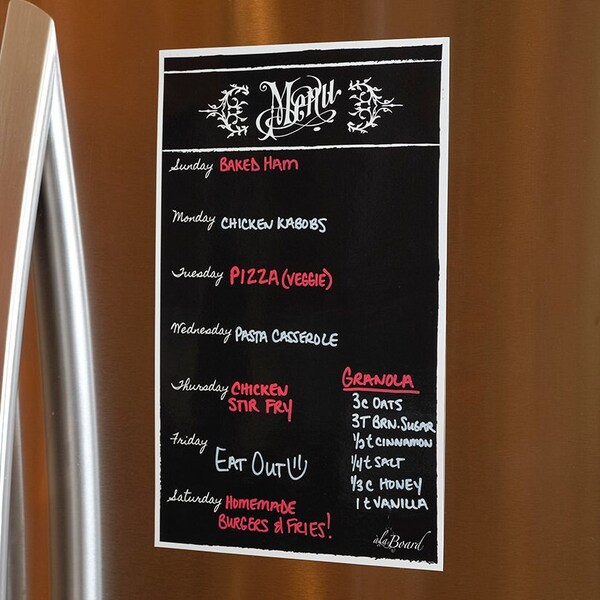 Menu
Sunday BAKED HAM
Monday CHICKEN KABOBS
Tuesday PIZZA (VEGGIE)
Wednesday PASTA CASSEROLE
Thursday CHICKEN
STIR FRY
Friday
EAT OUT
Saturday HOMEMADE
BURGERS & FRIES!
GRANOLA
3c OATS
3T BRN. SUGAR
1/2t CINNAMON
1/4t SALT
1/3c HONEY
1t VANILLA
àlaBoard